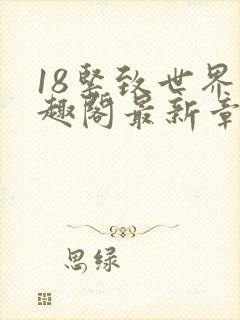 18坚致世界
趣阁最新章
思绿